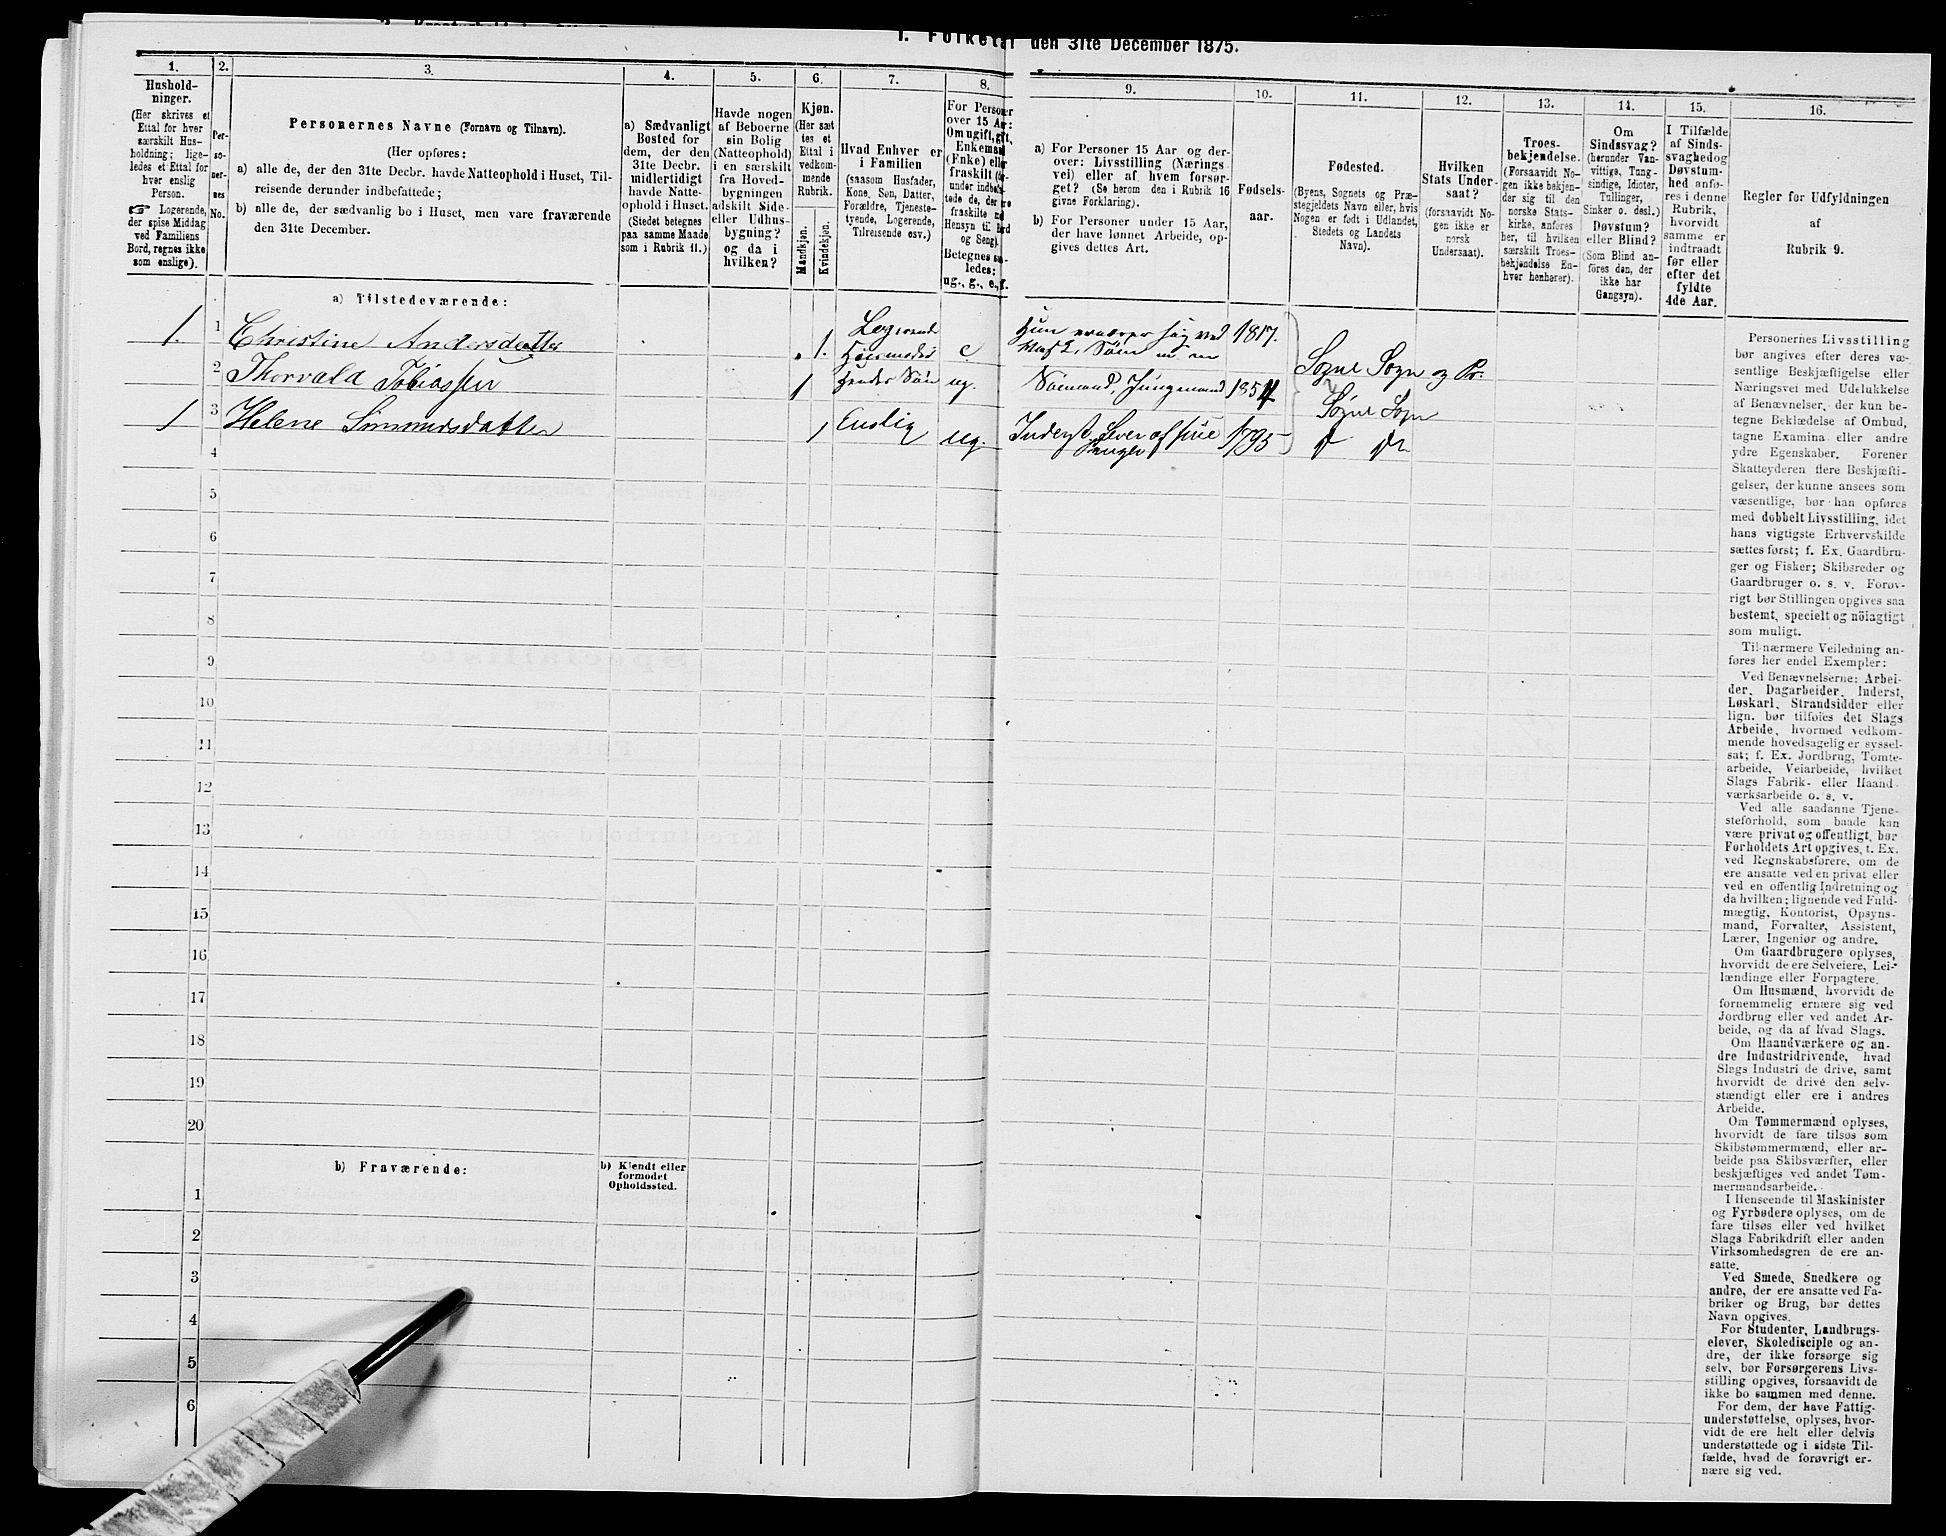 1. Folketal den 31te December 1875.
1.
Hushold-
ninger.
(Her skrives et
Ettal for hver
særskilt Hus-
holdning; lige-
ledes et Ettal for
hver enslig
Person.
☞ Logerende,
der spise Middag
ved Familiens
Bord, regnes ikke
som enslige).
2.
Per-
so-
ner-
nes
No.
3.
Personernes Navne (Fornavn og Tilnavn).
(Her opføres:
a) alle de, der den 31te Decbr. havde Natteophold i Huset, Til-
reisende derunder indbefattede;
b) alle de, der sædvanlig bo i Huset, men vare fraværende
den 31te December.
4.
a) Sædvanligt
Bosted for
dem, der den
31te Decbr.
midlertidigt
havde Natte-
ophold i Huset.
(Stedet betegnes
paa samme Maade
som i Rubrik 11.)
5.
Havde nogen
af Beboerne
sin Bolig
(Natteophold)
i en særskilt
fra Hoved-
bygningen
adskilt Side-
eller Udhus-
bygning?
og da i
hvilken?
6.
Kjøn.
(Her sæt
tes et
Ettal i
vedkom-
mende
Rubrik.
Mandkjøn.
Kvindekjøn.
7.
Hvad Enhver er
i Familien
(saasom Husfader,
Kone, Søn, Datter,
Forældre, Tjeneste-
tyende, Logerende,
Tilreisende osv.)
8.
For Personer
over 15 Aar:
Om ugift, gift,
Enkemand
(Enke) eller
fraskilt
Hensyn til Bord
og Seng).
Betegnes saa-
ledes:
ug., g., e., f.
9.
a) For Personer 15 Aar og der-
over: Livsstilling (Nærings
vei) eller af hvem forsør-
get? (Se herom den i Rubrik 16
givne Forklaring).
b) For Personer under 15 Aar,
der have lønnet Arbeide, op-
gives dettes Art.
10.
Fødsels-
aar.
11.
Fødested.
(Byens, Sognets og Præ-
stegjeldets Navn eller, hvis
Nogen er født i Udlandet,
Stedets og Landets
Navn).
12.
Hvilken
Stats Under-
saat?
(forsaavidt No-
gen ikke er
norsk
Undersaat).
13.
Troes-
bekjendelse.
(Forsaavidt No-
gen ikke bekjen-
der sig til den
norske Stats-
kirke, anføres
her, til hvilken
særskilt Troes-
bekjendelse En-
hver henhører).
14.
Om
Sindssvag?
(herunder Van-
vittige, Idioter,
Tullinger,
Sinker o. desl.)
Døvstum?
eller Blind?
(Som Blind an-
føres den, der
ikke har
Gangsyn).
15.
I Tilfælde
af Sinds-
svaghedog
Døvstum-
hed anfø-
res i denne
Rubrik,
hvorvidt
samme er
indtraadt
før eller
efter det
fyldte
4de Aar.
16.
Regler for Udfyldningen
af
Rubrik 9.
a) Tilstedeværende:
1. 1 Christine Andersdatter 1. Logerende e 1817.
2 Thorvald Tobiassen 1 Hendes Søn ug. Sømand, Jungmand 1854 Søgne Sogn og Pr:
1 3 Helene Simmersdatter 1 Enslig ug. Inderst 1795 Søgne Sogn
4
5
6
7
8
9
10
11
12
13
14
15
16
17
18
19
20
b) Fraværende:
b) Kjendt eller
formodet
Opholdssted.
1
2
3
4
5
6
Personernes Livsstilling
bør angives efter deres væ-
sentlige Beskjæftigelse eller
Næringsvei med Udelukkelse
af Benævnelser, der kun be-
tegne Beklædelse af Ombud,
tagne Examina eller andre
ydre Egenskaber. Forener
Skatteyderen flere Beskjæfti-
gelser, der kunne ansees som
væsentlige, bør han opføres
med dobbelt Livsstilling, idet
hans vigtigste Erhvervskilde
sættes først; f. Ex. Gaardbru-
ger og Fisker; Skibsreder og
Gaardbruger o. s. v. Forøv-
rigt bør Stillingen opgives saa
bestemt, specielt og nöiagtigt
som muligt.
Til nærmere Veiledning an-
føres her endel Exempler:
Ved Benævnelserne: Arbei-
der, Dagarbeider, Inderst,
Løskarl, Strandsidder eller
lign. bør tilføies det Slags
Arbeide, hvormed vedkom-
mende hovedsagelig er syssel-
sat; f. Ex. Jordbrug, Tomte-
arbeide, Veiarbeide, hvilket
Slags Fabrik- eller Haand-
værksarbeide o. s. v.
Ved alle saadanne Tjene-
steforhold, som baade kan
være privat og offentligt, bør
Forholdets Art opgives, t. Ex.
ved Regnskabsførere, om de
ere ansatte ved en privat eller
ved en offentlig Indretning og
da hvilken; lignende ved Fuld-
mægtig, Kontorist, Opsyns-
mand, Forvalter, Assistent,
Lærer, Ingeniør og andre.
Om Gaardbrugere oplyses,
hvorvidt de ere Selveiere, Lei-
lændinge eller Forpagtere.
Om Husmænd, hvorvidt de
fornemmelig ernære sig ved
Jordbrug eller ved andet Ar-
beide, og da af hvad Slags.
Om Haandværkere og an-
dre Industridrivende, hvad
Slags Industri de drive, samt
hvorvidt de drive den selv-
stændigt eller ere i andres
Arbeide.
Om Tømmermænd oplyses,
hvorvidt de fare tilsøs som
Skibstømmermænd, eller ar-
beide paa Skibsværfter, eller
beskjæftiges ved andet Tøm-
mermandsarbeide.
I Henseende til Maskinister
og Fyrbødere oplyses, om de
fare tilsøs eller ved hvilket
Slags Fabrikdrift eller anden
Virksomhedsgren de ere an-
satte.
Ved Smede, Snedkere og
andre, der ere ansatte ved Fa-
briker og Brug, bør dettes
Navn opgives.
For Studenter, Landbrugs-
elever, Skoledisciple og an-
dre, der ikke forsørge sig
selv, bør Forsørgerens Livs-
stilling opgives, forsaavidt de
ikke bo sammen med denne.
For dem, der have Fattig-
understøttelse, oplyses, hvor-
vidt de ere helt eller delvis
understøttede og i sidste Til-
fælde, hvad de forøvrigt er-
nære sig ved.